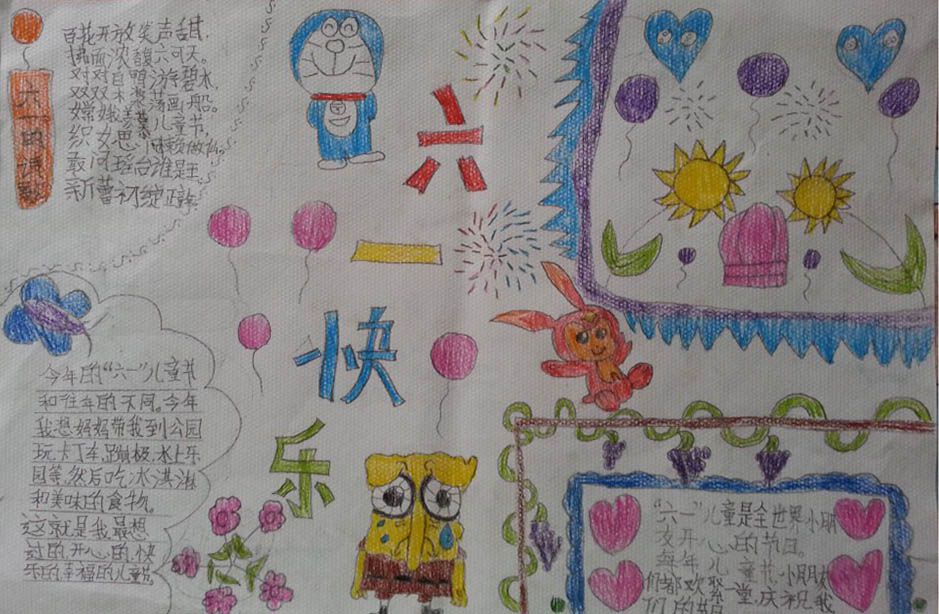 六一的诗歌
百花开放笑声甜,
拂面浓馥六可天。
对对白鸭游碧水,
双双木浆荡画船。
嫦娥羡慕儿童节,
织女思
敢问瑶台谁是王
新蕾初绽正
六
一
快
乐
今年的“六一”儿童节
和往年的不同。今年
我想妈妈带我到公园
玩卡丁车,蹦极,水上乐
园等,然后吃冰淇淋
和美味的食物。
这就是我最想
过的开心的快
乐的幸福的儿童节。
“六一”儿童是全世界小朋
友开心的节日。
每年儿童节,小朋友
们都欢聚一堂,庆祝我
们的节日